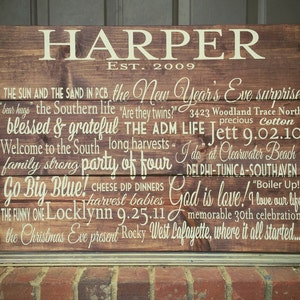 HARPER
EST. 2009
THE SUN AND THE SAND IN PCB the New Year's Eve surprise
bear hugs the Southern life "Are they twins?" 3423 Woodland Trace North
precious Cotton
blessed & grateful THE ADM LIFE Jett 9.02.10
Welcome to the South long harvests I do @ Clearwater Beach
family strong party of four DELPHI-TUNICA-SOUTHAVEN
Go Big Blue! CHEESE DIP DINNERS God is love! "Boiler Up!"
harvest babies I love our life
THE FUNNY ONE Locklynn 9.25.11 memorable 30th celebration
the Christmas Eve present Rocky West Lafayette, where it all started...